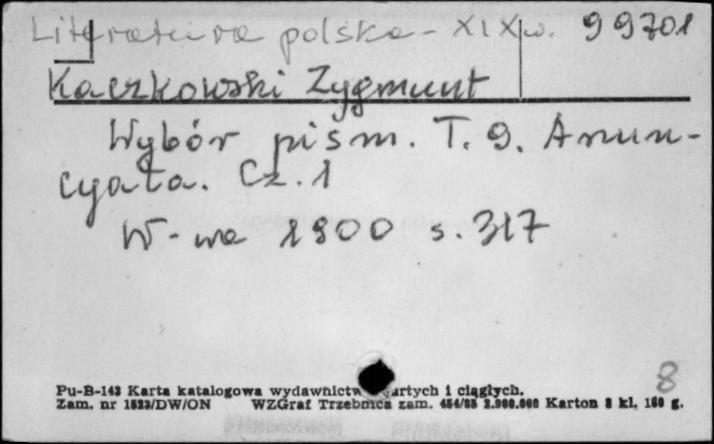 Literatura polska - XIX w. 99701
Kaczkowski Zygmunt
Wybór pism. T. 9. Anun-
cyata. Cz. 1
W-wa 1900 s. 317
8
Pu-B-143 Karta katalogowa wydawnictw zwartych i ciągłych.
Zam. nr 1523/DW/ON WZGraf Trzebnica zam. 454/85 2.000.000 Karton 8 kl. 180 g.